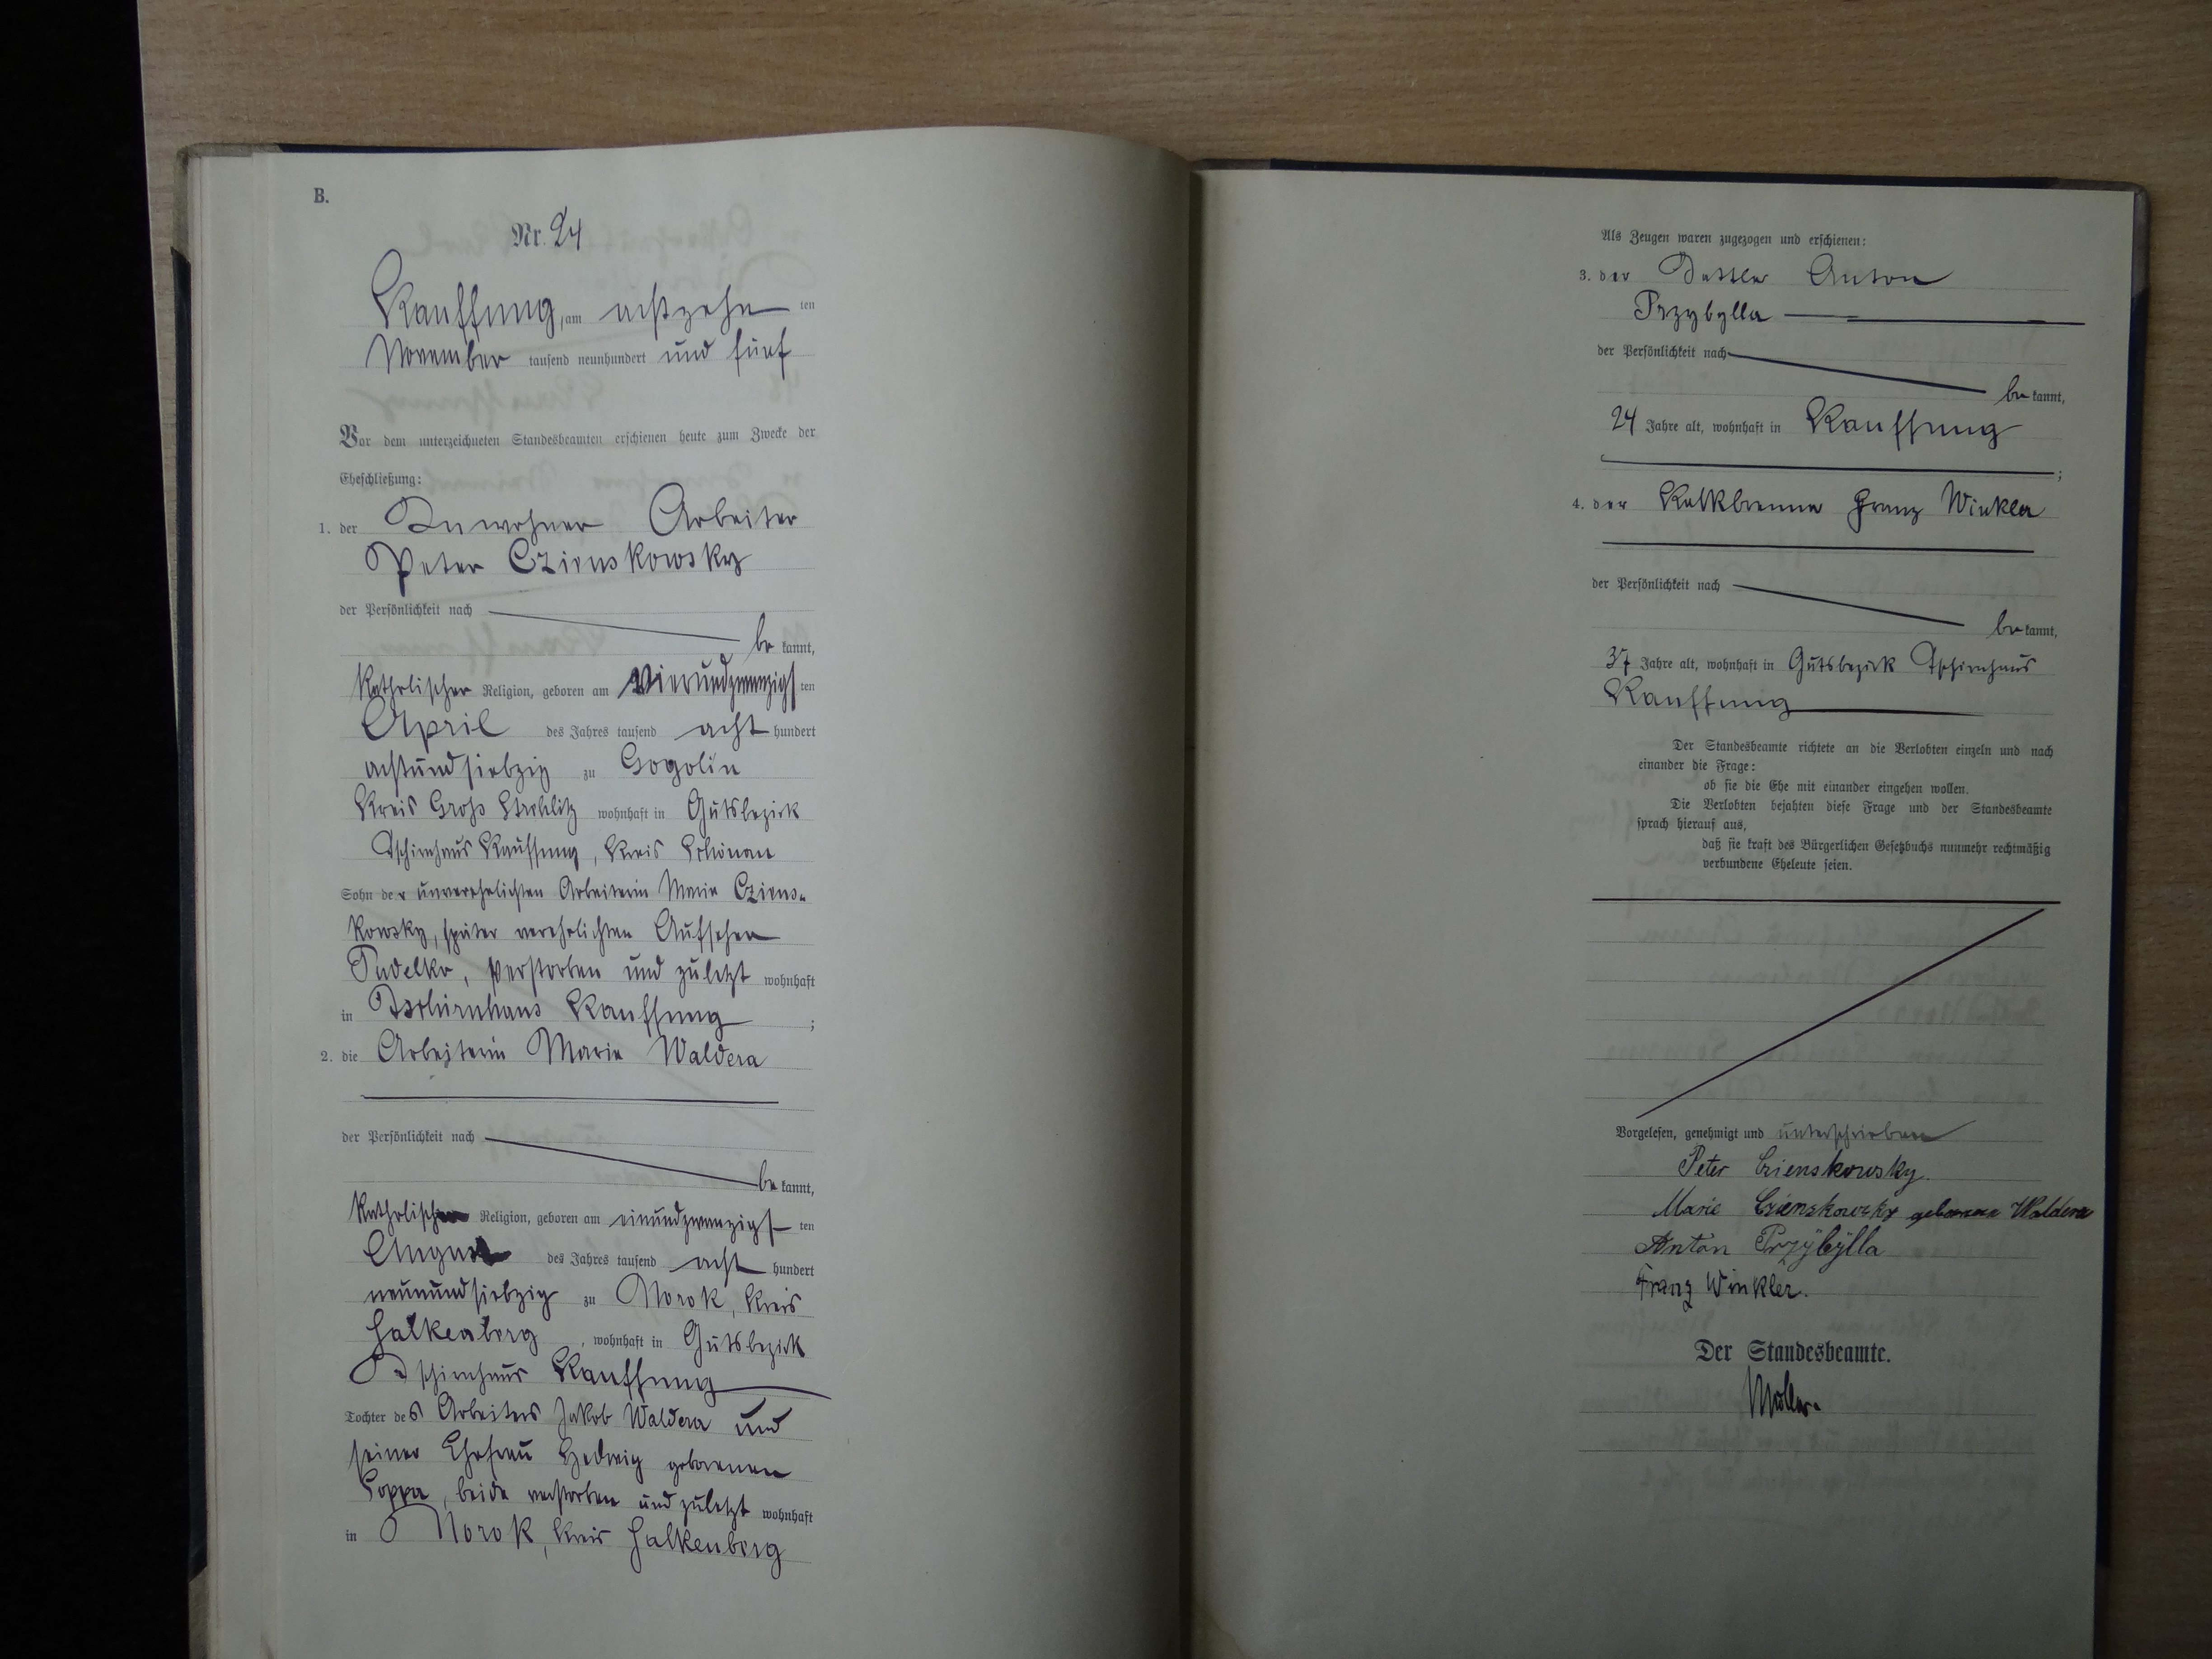 B.
Nr. 24
Kauffung, am achtzehn ten
November tausend neunhundert und fünf
Vor dem unterzeichneten Standesbeamten erschienen heute zum Zwecke der
Eheschließung:
1. der Inwohner Arbeiter
Peter Czienskowsky
der Persönlichkeit nach
be kannt,
katholischer Religion, geboren am vierundzwanzigs ten
April des Jahres tausend acht hundert
achtundsiebzig zu Gogolin
Kreis Groß Strehlitz wohnhaft in Gutsbezirk
Tschirnhaus Kauffung, Kreis Schönau
Sohn der unverehelichten Arbeiterin Marie Cziens-
kowsky, später verehelichten Aufseher
Pudelko, verstorben und zuletzt wohnhaft
in Tschirnhaus Kauffung ;
2. die Arbeiterin Marie Waldera
der Persönlichkeit nach
be kannt,
katholischer Religion, geboren am einundzwanzigs ten
August des Jahres tausend acht hundert
neunundsiebzig zu Norok, Kreis
Falkenberg, wohnhaft in Gutsbezirk
Tschirnhaus Kauffung
Tochter des Arbeiters Jakob Waldera und
seiner Ehefrau Hedwig geborenen
Soppa, beide verstorben und zuletzt wohnhaft
in Norok, Kreis Falkenberg
Als Zeugen waren zugezogen und erschienen:
3. der Sattler Anton
Przybylla
der Persönlichkeit nach
be kannt,
24 Jahre alt, wohnhaft in Kauffung
;
4. der Kalkbrenner Franz Winkler
der Persönlichkeit nach
be kannt,
37 Jahre alt, wohnhaft in Gutsbezirk Tschirnhaus
Kauffung
Der Standesbeamte richtete an die Verlobten einzeln und nach
einander die Frage:
ob sie die Ehe mit einander eingehen wollen.
Die Verlobten bejahten diese Frage und der Standesbeamte
sprach hierauf aus,
daß sie kraft des Bürgerlichen Gesetzbuchs nunmehr rechtmäßig
verbundene Eheleute seien.
Vorgelesen, genehmigt und unterschrieben
Peter Czienskowsky.
Marie Czienskowsky geborene Waldera
Anton Przybylla
Franz Winkler.
Der Standesbeamte.